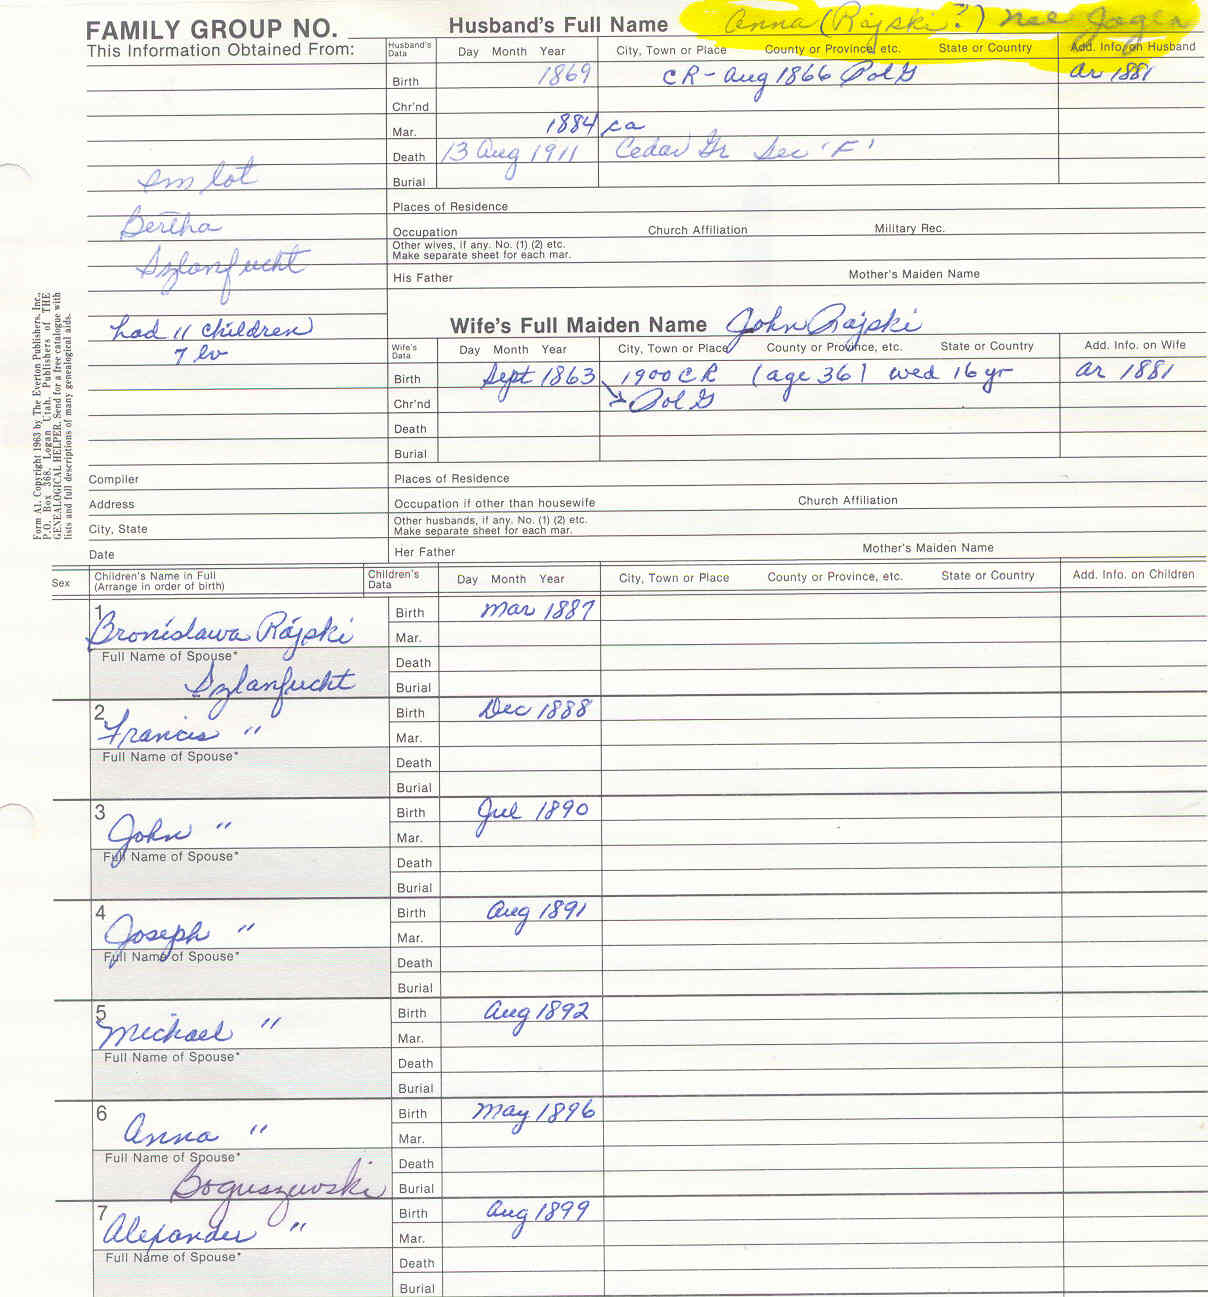 FAMILY GROUP NO.
This Information Obtained From:
Husband's Full Name Anna (Rajski?) nee Jagen
Husband's Data Day Month Year City, Town or Place County or Province, etc. State or Country Add. Info. on Husband
Birth 1869 CR - Aug 1866 Pol G ar 1881
Chr'nd
Mar. 1884 ca
Death 13 Aug 1911 Cedar Gr Sec 'F'
Burial
sm lot
Bertha
Szlanfucht
had 11 children
7 lv
Places of Residence
Occupation Church Affiliation Military Rec.
Other wives, if any. No. (1) (2) etc.
Make separate sheet for each mar.
His Father Mother's Maiden Name
Wife's Full Maiden Name John Rajski
Wife's Data Day Month Year City, Town or Place County or Province, etc. State or Country Add. Info. on Wife
Birth Sept 1863 1900 CR (age 36) wed 16 yr ar 1881
Chr'nd Pol G
Death
Burial
Form A1. Copyright 1963 by The Everton Publishers, Inc.,
P.O. Box 368, Logan Utah. Publishers of THE
GENEALOGICAL HELPER. Send for a free catalogue with
lists and full descriptions of many genealogical aids.
Compiler Places of Residence
Address Occupation if other than housewife Church Affiliation
City, State Other husbands, if any. No. (1) (2) etc.
Make separate sheet for each mar.
Date Her Father Mother's Maiden Name
Sex Children's Name in Full
(Arrange in order of birth) Children's Data Day Month Year City, Town or Place County or Province, etc. State or Country Add. Info. on Children
1 Birth Mar 1887
Bronislawa Rajski Mar.
Full Name of Spouse* Death
Szlanfucht Burial
2 Birth Dec 1888
Francis " Mar.
Full Name of Spouse* Death
Burial
3 Birth Jul 1890
John " Mar.
Full Name of Spouse* Death
Burial
4 Birth Aug 1891
Joseph " Mar.
Full Name of Spouse* Death
Burial
5 Birth Aug 1892
Michael " Mar.
Full Name of Spouse* Death
Burial
6 Birth May 1896
Anna " Mar.
Full Name of Spouse* Death
Boguszewski Burial
7 Birth Aug 1899
Alexander " Mar.
Full Name of Spouse* Death
Burial